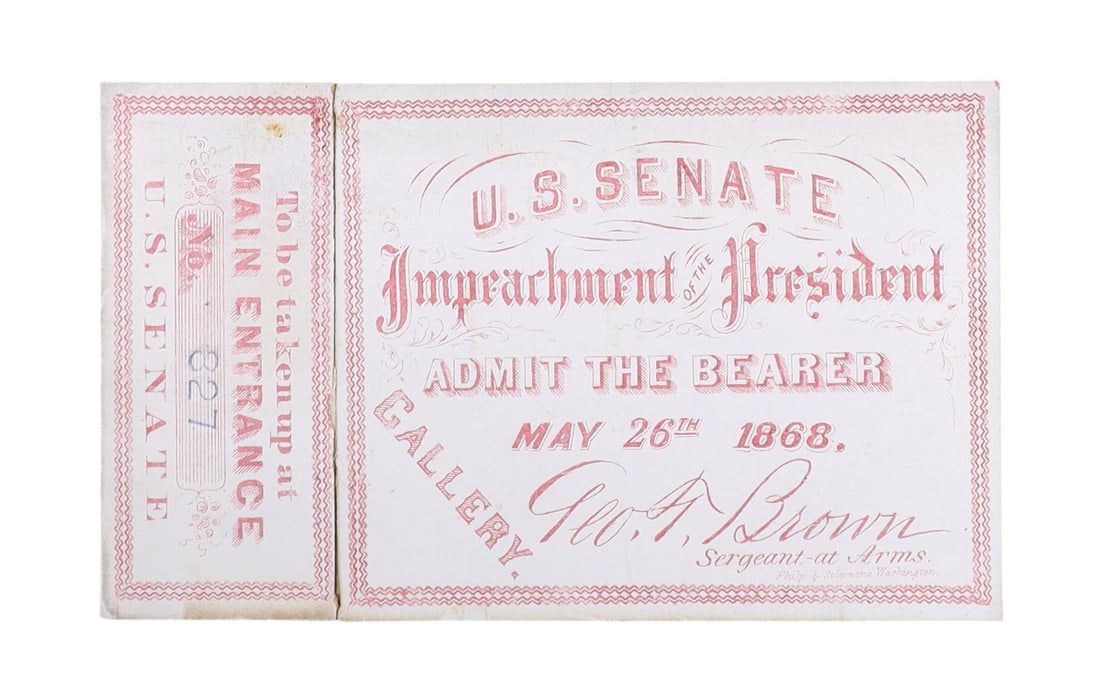 To be taken up at
MAIN ENTRANCE
No. 827
U.S. SENATE
U.S. SENATE
Impeachment OF THE President
ADMIT THE BEARER
MAY 26TH 1868.
GALLERY.
Geo. T. Brown
Sergeant-at Arms.
Philp & Solomons Washington.